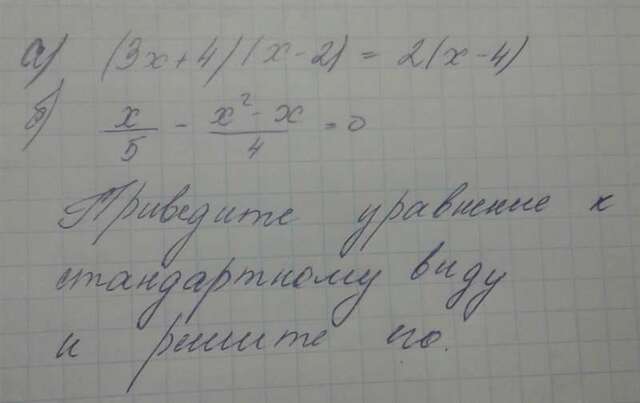 а) (3x+4)(x-2) = 2(x-4)
б) x/5 - (x²-x)/4 = 0
Приведите уравнение к
стандартному виду
и решите его.